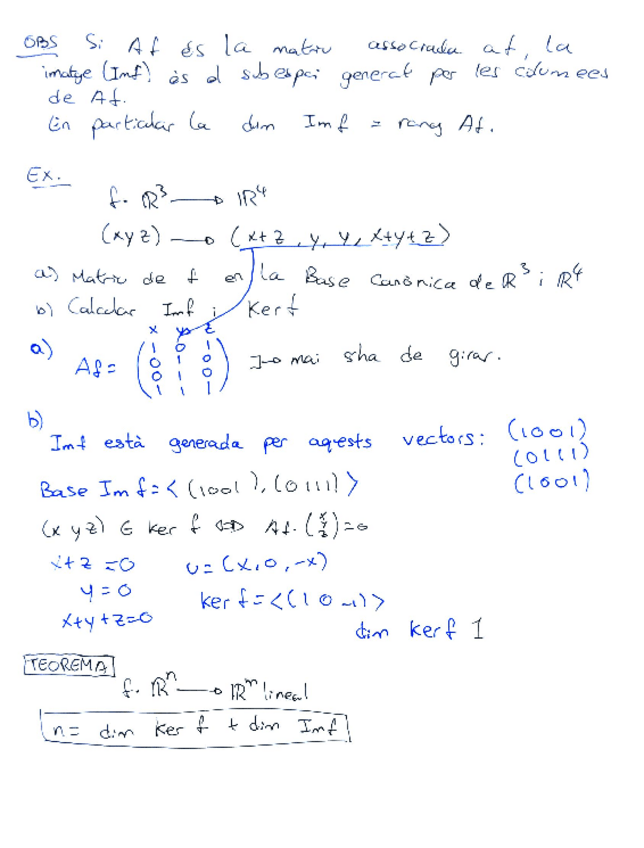 OBS Si Af és la matriu associada a f, la
imatge (Imf) és el subespai generat per les columnes
de Af.
En particular la dim Imf = rang Af.
Ex.
f. ℝ³ → ℝ⁴
(x y z) → (x+z, y, y, x+y+z)
a) Matriu de f en la Base Canònica de ℝ³ i ℝ⁴
b) Calcular Imf i Kerf
x y z
a) Af = (1 0 1
0 1 0
0 1 0
1 1 1) → mai s'ha de girar.
b)
Imf està generada per aquests vectors: (1001)
(0111)
(1001)
Base Imf = < (1001), (0111) >
(x y z) ∈ ker f ⇔ Af. (x y z) = 0
x+z = 0 u = (x, 0, -x)
y = 0 ker f = <(1 0 -1)>
x+y+z=0
dim kerf 1
TEOREMA
f. ℝⁿ → ℝᵐ lineal
n = dim ker f + dim Imf